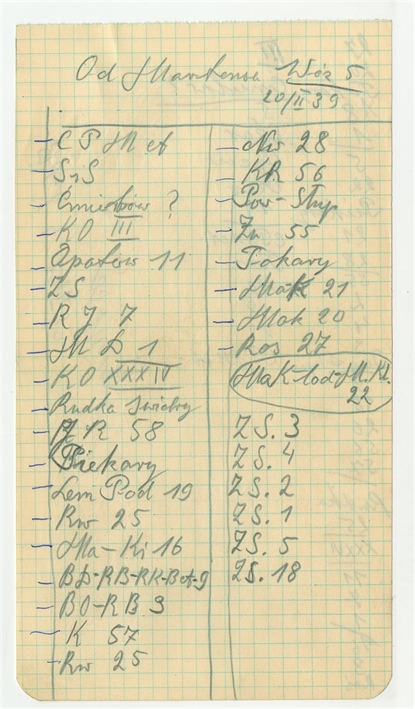 Od Martensa Wóz 5
20/II 39
C P M et
SrS
Ćmielow ?
KO III
Opatow 11
ZS
R J 7
M D 1
KO XXXIV
Rudka Swidry
R 58
Piekary
Lem Pod 19
Rw 25
Ma-Ki 16
BD-RB-RK-Bot-9
BO-RB 3
K 57
Rw 25
Nw 28
KR 56
Pow-Stup
Zn 55
Tokary
MaK 21
Mok 20
Ros 27
MaK-lod-M.Kl.
22
ZS. 3
ZS. 4
ZS. 2
ZS. 1
ZS. 5
ZS. 18